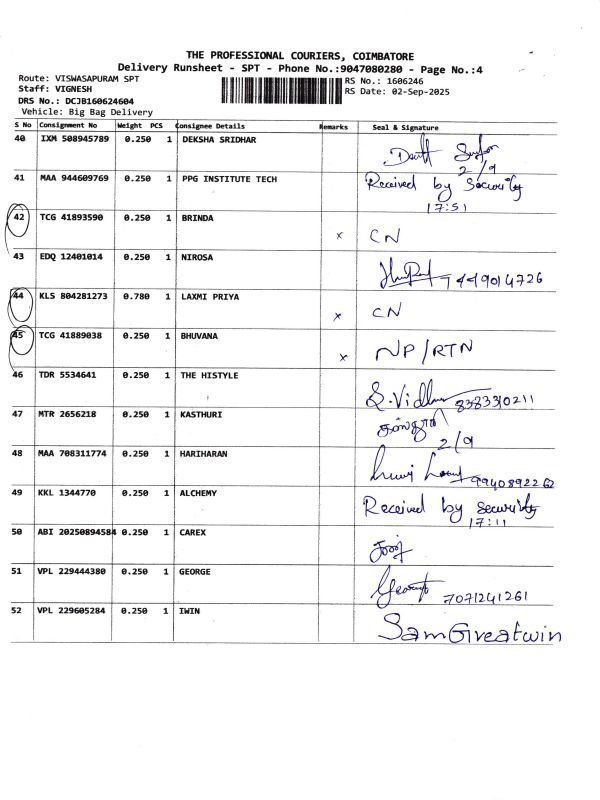 THE PROFESSIONAL COURIERS, COIMBATORE
Delivery Runsheet - SPT - Phone No.:9047080280 - Page No.:4
Route: VISWASAPURAM SPT RS No.: 1606246
Staff: VIGNESH RS Date: 02-Sep-2025
DRS No.: DCJB160624604
Vehicle: Big Bag Delivery
S No Consignment No Weight PCS Consignee Details Remarks Seal & Signature
40 IXM 508945789 0.250 1 DEKSHA SRIDHAR
2/9
41 MAA 944609769 0.250 1 PPG INSTITUTE TECH Received by Security
17:51
42 TCG 41893590 0.250 1 BRINDA x CN
43 EDQ 12401014 0.250 1 NIROSA 9449014726
44 KLS 804281273 0.780 1 LAXMI PRIYA x CN
45 TCG 41889038 0.250 1 BHUVANA x NP/RTN
46 TDR 5534641 0.250 1 THE HISTYLE S. Vidhu 8383310211
47 MTR 2656218 0.250 1 KASTHURI கஸ்தூரி
2/9
48 MAA 708311774 0.250 1 HARIHARAN 9940892262
49 KKL 1344770 0.250 1 ALCHEMY Received by Security
17:11
50 ABI 20250894584 0.250 1 CAREX
51 VPL 229444380 0.250 1 GEORGE 7071241261
52 VPL 229605284 0.250 1 IWIN SamGreatwin